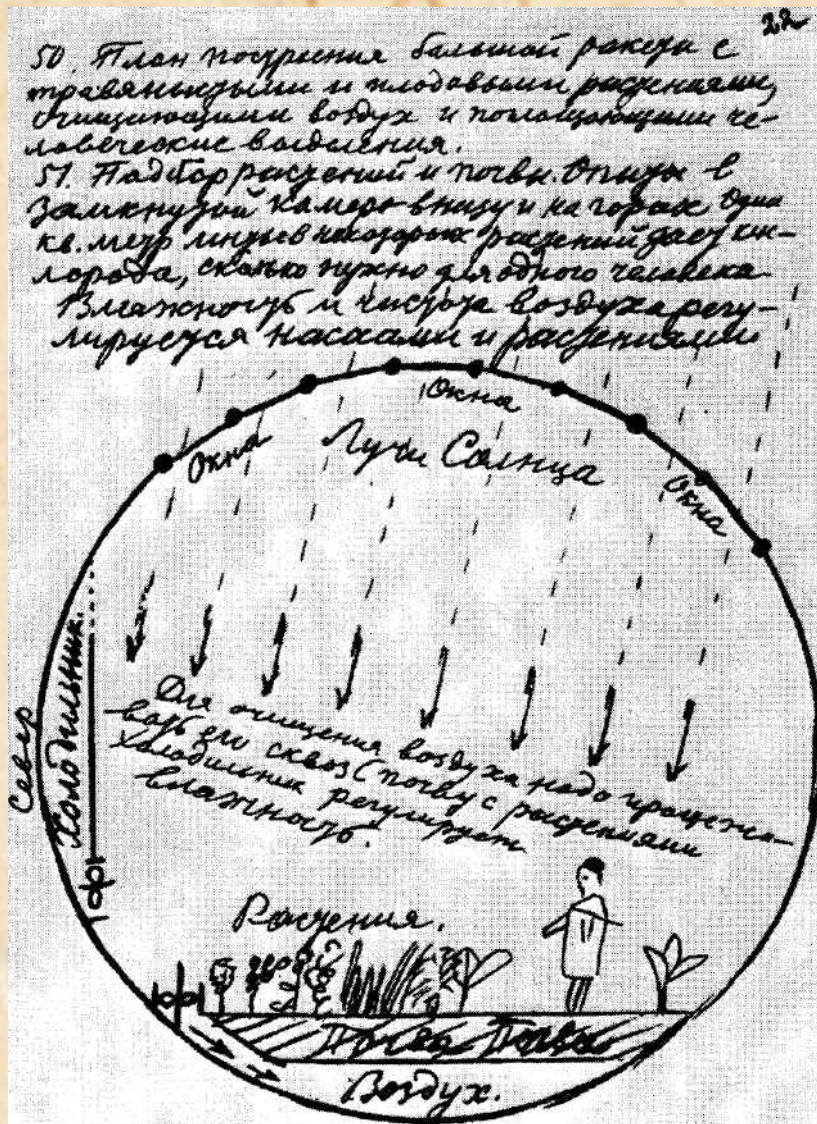 22
50. План построения большой ракеты с
травянистыми и плодовыми растениями,
очищающими воздух и поглощающими че-
ловеческие выделения.
51. Подбор растений и почвы. Опыты в
замкнутой камере внизу и на горах. Один
кв. метр листьев некоторых растений дает кис-
лорода, сколько нужно для одного человека.
Влажность и чистота воздуха регу-
лируется насосами и растениями
Окна
Окна
Лучи Солнца
Окна
Север
Холодильник.
Для очищения воздуха надо процежи-
вать его сквозь почву с растениями
Холодильник регулирует
влажность.
Растения.
Почва Почва
Воздух.